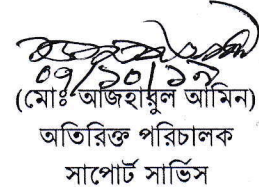 ০৭/১০/১৯
(মোঃ আজিহারুল আমিন)
অতিরিক্ত পরিচালক
সাপোর্ট সার্ভিস